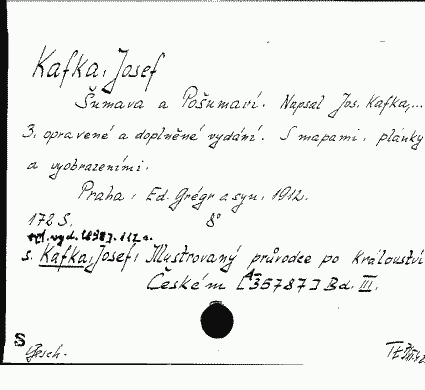 Kafka, Josef
Šumava a Pošumaví. Napsal Jos. Kafka,...
3. opravené a doplněné vydání. S mapami, plánky
a vyobrazeními.
Praha: Ed. Grégr a syn. 1912.
172 S. 8°
vyd. 1898]. 112 s.
s. Kafka, Josef: Illustrovaný průvodce po království
Českém [A-35787] Bd. III.
S
Gesch.